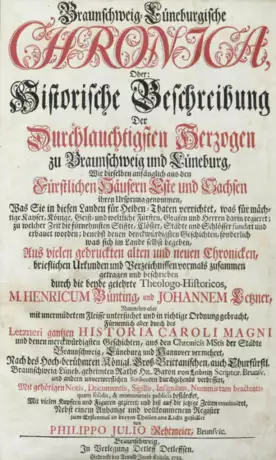 Braunschweig-Lüneburgische
CHRONICA,
Oder:
Historische Beschreibung
Der
Durchlauchtigsten Herzogen
zu Braunschweig und Lüneburg,
Wie dieselben anfänglich aus den
Fürstlichen Häusern Este und Sachsen
ihren Ursprung genommen,
Was Sie in diesen Landen für Helden-Thaten verrichtet, was für mäch-
tige Kayser, Könige, Geist- und weltliche Fürsten, Grafen und Herren darin regieret;
zu welcher Zeit die fürnehmsten Stiffte, Clöster, Städte und Schlösser fundirt und
erbauet worden; benebst denen merckwürdigsten Geschichten, sonderlich
was sich im Lande selbst begeben,
Aus vielen gedruckten alten und neuen Chronicken,
brieflichen Urkunden und Verzeichnissen vormals zusammen
getragen und beschrieben
durch die beyde gelehrte Theologo-Historicos,
M. HENRICUM Bünting, und JOHANNEM Letzner,
Nunmehro aber
mit unermüdetem Fleisse untersuchet und in richtige Ordnung gebracht,
Fürnemlich aber durch des
Letzneri gantzen HISTORIA CAROLI MAGNI
und denen merckwürdigsten Geschichten, aus den Chronicis MSCtis der Städte
Braunschweig, Lüneburg und Hannover vermehret,
Nach des Hoch-berühmten Königl. Groß-Brittanischen, auch Churfürstl.
Braunschweig-Lüneb. geheimten Raths Hn. Baron von Leibnitz Scriptor. Brunsv.
und andern
Mit gehörigen Notis, Documentis, Sigillis,
quam solidis, & monumentis publicis bestärcket,
Mit vielen Kupffern und Figuren gezieret und biß auf die jetzige Zeiten continuiret,
Nebst einem Anhange und vollkommenem Register
von
PHILIPPO JULIO Rehtmeier, Brunsvic.
Braunschweig,
In Verlegung Detlef Detleffsen.